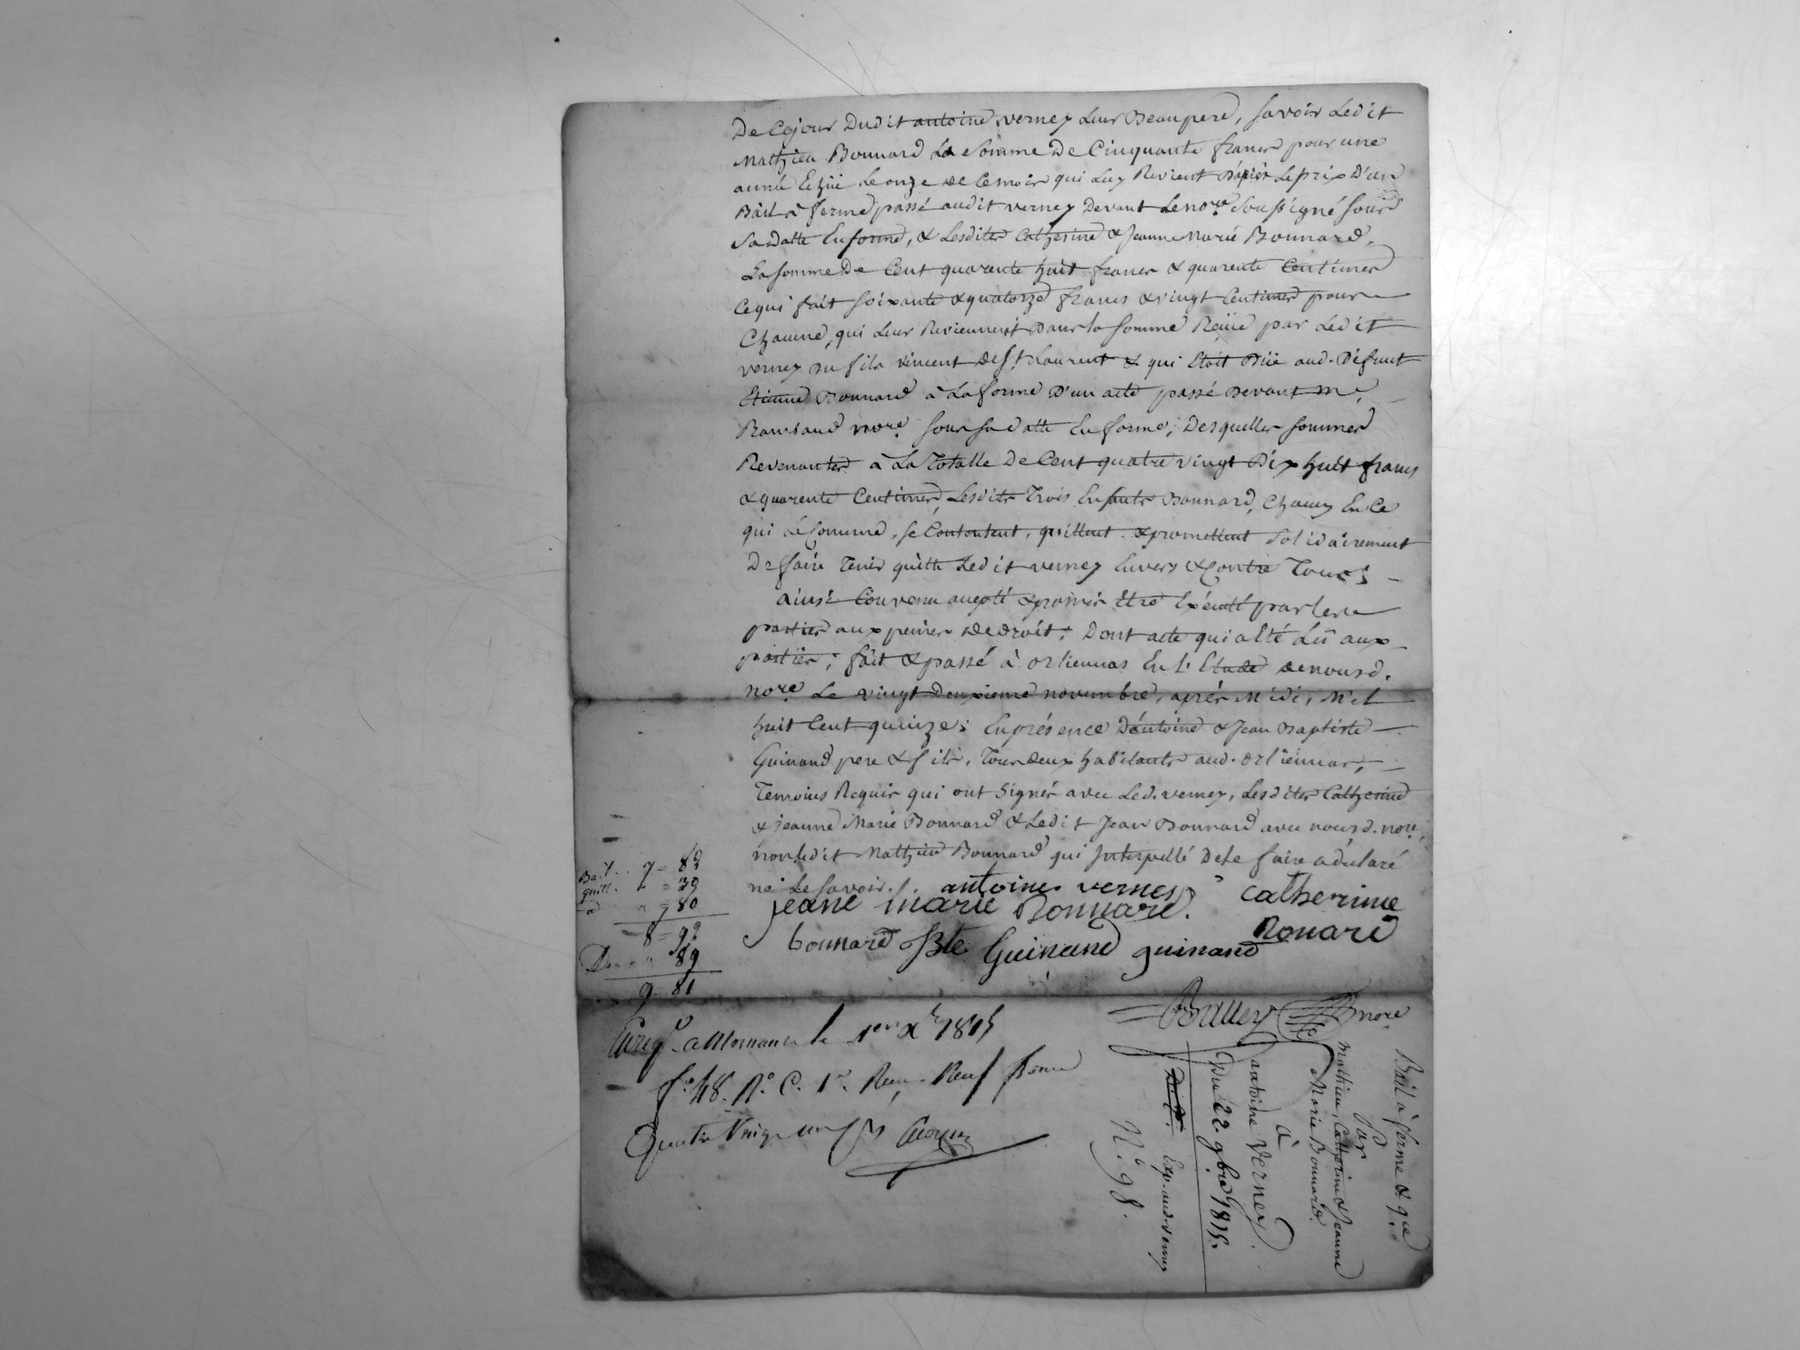 De Cejour Dudit antoine verney Leur Beaupere, savoir Ledit
Mathieu Bonnard La somme De Cinquante francs pour une
année Echüe Le onze de Cemois qui Luy Revient D'après Leprix D'un
Bail à ferme passé audit verney Devant Le nore. Soussigné sous
Sa datte Enforme, & Lesdites Catherine & Jeanne Marie Bonnard,
La somme De Cent quarente huit francs & quarente Centimes
Cequi fait soixante & quatorze francs & vingt Centimes pour
Chacune, qui Leur Reviennent Dans la somme Reçüe par Ledit
verney du fils vincent de St. Laurent & qui Etoit Düe aud. Défunt
Etienne Bonnard à La forme D'un acte passé Devant Me.
nore. sous sa datte En forme; Desquelles sommes
Revenantes à La Totalle De Cent quatre vingt Dix huit francs
& quarente Centimes, Lesdits Trois Enfants Bonnard, Chacun En Ce
qui Le Concerne, se Contentent, quittent & promettent solidairement
De faire Tenir quitte Ledit verney Envers & Contre Tous;
ainsi Convenu accepté & promis être Exécuté par les
parties aux peines de droit; Dont acte qui a Eté Lû aux
parties; fait & passé à orlienas En L'Etude de nousd.
nore Le vingt Deuxieme novembre, après Midi, Mil
huit Cent quinze; En présence D'antoine & Jean Baptiste
Guinand pere & fils, Tous deux habitants aud. orlienas,
Temoins Requis qui ont signés avec Led. verney, Lesdites Catherine
& jeanne Marie Bonnard & Ledit Jean Bonnard avec nousd. nore,
non Ledit Mathieu Bonnard qui Interpellé De le faire a déclaré
ne Le savoir./.
antoine verney catherine
jeane marie Bonnard. Bonard
bonnard JBte Guinand guinand
nore.
Bail .. 7 = 83
quitt. " = 39
" = 80
8 = 92
" 89
9 = 81
Enregé. a Mornant le 1er Xe 1815
fo. 48. Ro. C. 1re. Reçu Neuf francs
Quatre Vingt un
Bail à ferme & qce
Par
Mathieu, Catherine & Jeanne
Marie Bonnard.
à
antoine Verney.
Du 22. 9bre 1815.
Exp. aud. verney
No. 98.